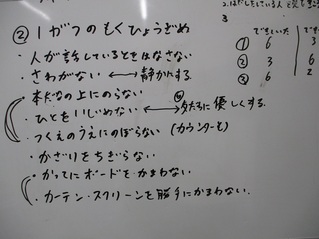 ② 1がつのもくひょうぎめ
・人が話しているとをはなさない
・さわがない ←→ 静かにする
・本だなの上にのらない
・ひとをいじめない ←→ 友だちに優しくする
・つくえのうえにのぼらない (カウンターも)
・かざりをちぎらない
・かってにボードをかまわない
・カーテン・スクリーンを勝手にかまわない.
3
① 6 3
② 3 6
③ 6 2